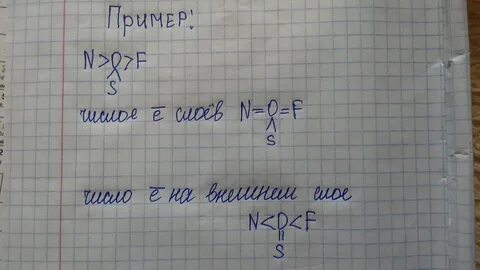 Пример:
N>O>F
^
S
числое ē слоёв N=O=F
^
S
число ē на внешнем слое
N<O<F
॥
S